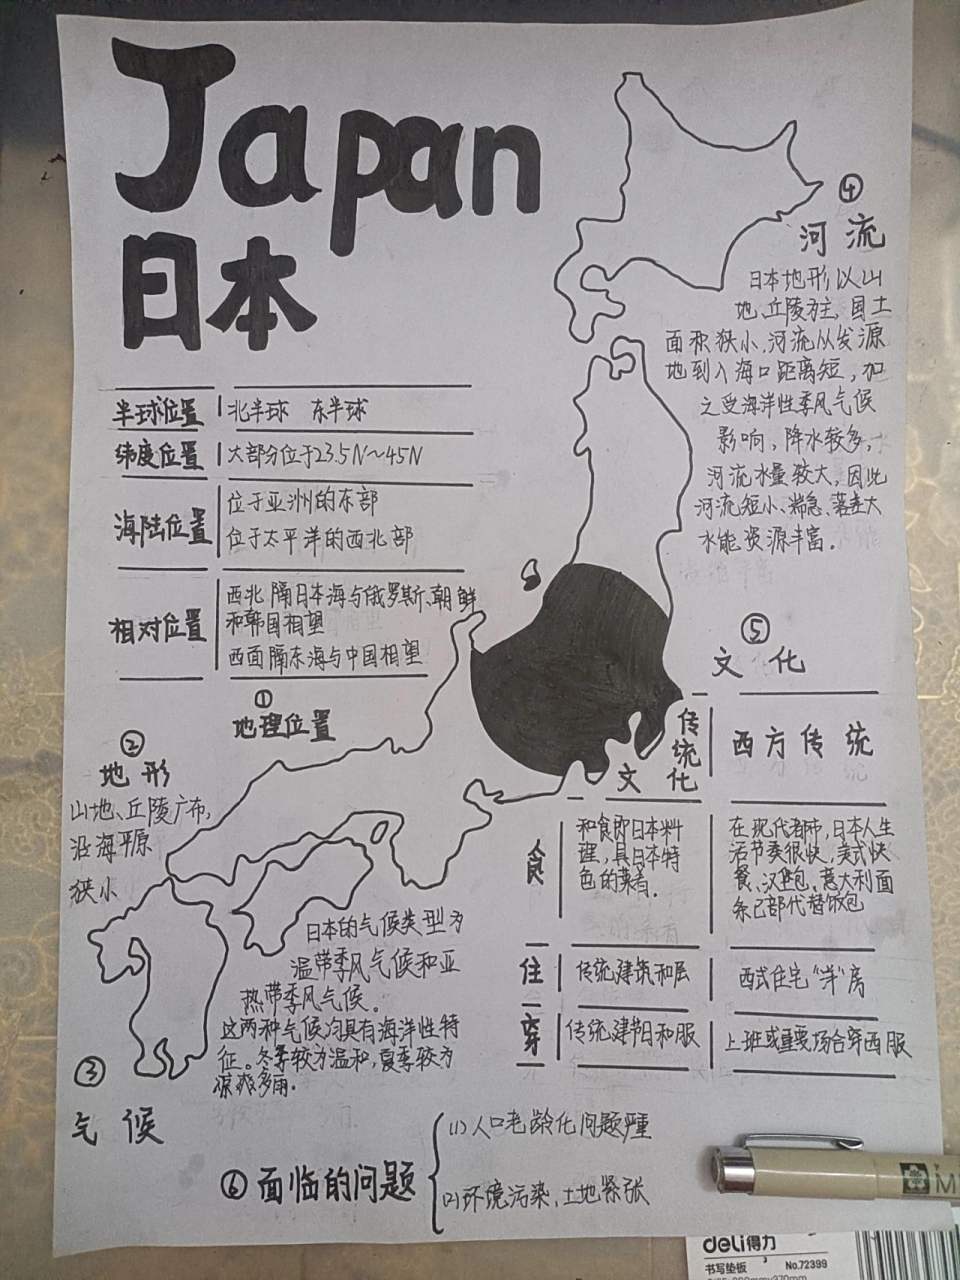 Japan
日本
半球位置 北半球 东半球
纬度位置 大部分位于23.5N~45N
海陆位置 位于亚洲的东部
位于太平洋的西北部
相对位置 西北隔日本海与俄罗斯、朝鲜
和韩国相望
西面隔东海与中国相望
①
地理位置
②
地形
山地、丘陵广布,
沿海平原
狭小
③
气候
日本的气候类型为
温带季风气候和亚
热带季风气候.
这两种气候均具有海洋性特
征。冬季较为温和,夏季较为
凉爽多雨.
④
河流
日本地形以山
地、丘陵为主,国土
面积狭小,河流从发源
地到入海口距离短,加
之受海洋性季风气候
影响,降水较多,
河流水量较大,因此
河流短小、湍急、落差大
水能资源丰富.
⑤
文化
传统
文化
西方传统
食
和食即日本料
理,具日本特
色的菜肴.
在现代都市,日本人生
活节奏很快,美式快
餐、汉堡包、意大利面
条已部代替饭包
住
传统建筑和屋
西式住宅"洋"房
穿
传统建节日和服
上班或重要场合穿西服
⑥面临的问题
(1)人口老龄化问题
(2)环境污染,土地紧张
deli得力
书写垫板 No.72399